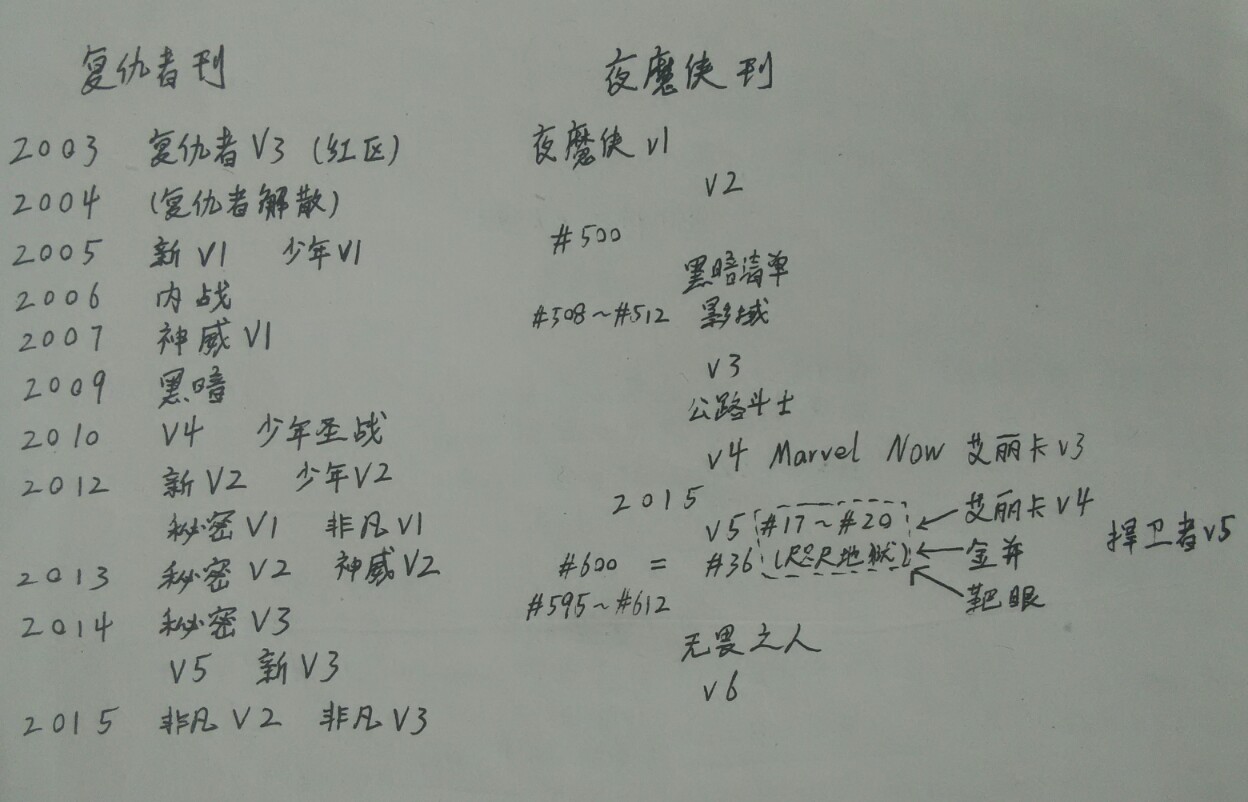 复仇者刊
2003 复仇者 V3 (红区)
2004 (复仇者解散)
2005 新 V1 少年 V1
2006 内战
2007 神威 V1
2009 黑暗
2010 V4 少年圣战
2012 新 V2 少年 V2
秘密 V1 非凡 V1
2013 秘密 V2 神威 V2
2014 秘密 V3
V5 新 V3
2015 非凡 V2 非凡 V3
夜魔侠刊
夜魔侠 V1
V2
#500
黑暗清单
#508~#512 影域
V3
公路斗士
V4 Marvel Now 艾丽卡 V3
2015
V5 #17~#20 艾丽卡 V4
#600 = #36 (R2R地狱) 金并 捍卫者 V5
#595~#612 靶眼
无畏之人
V6